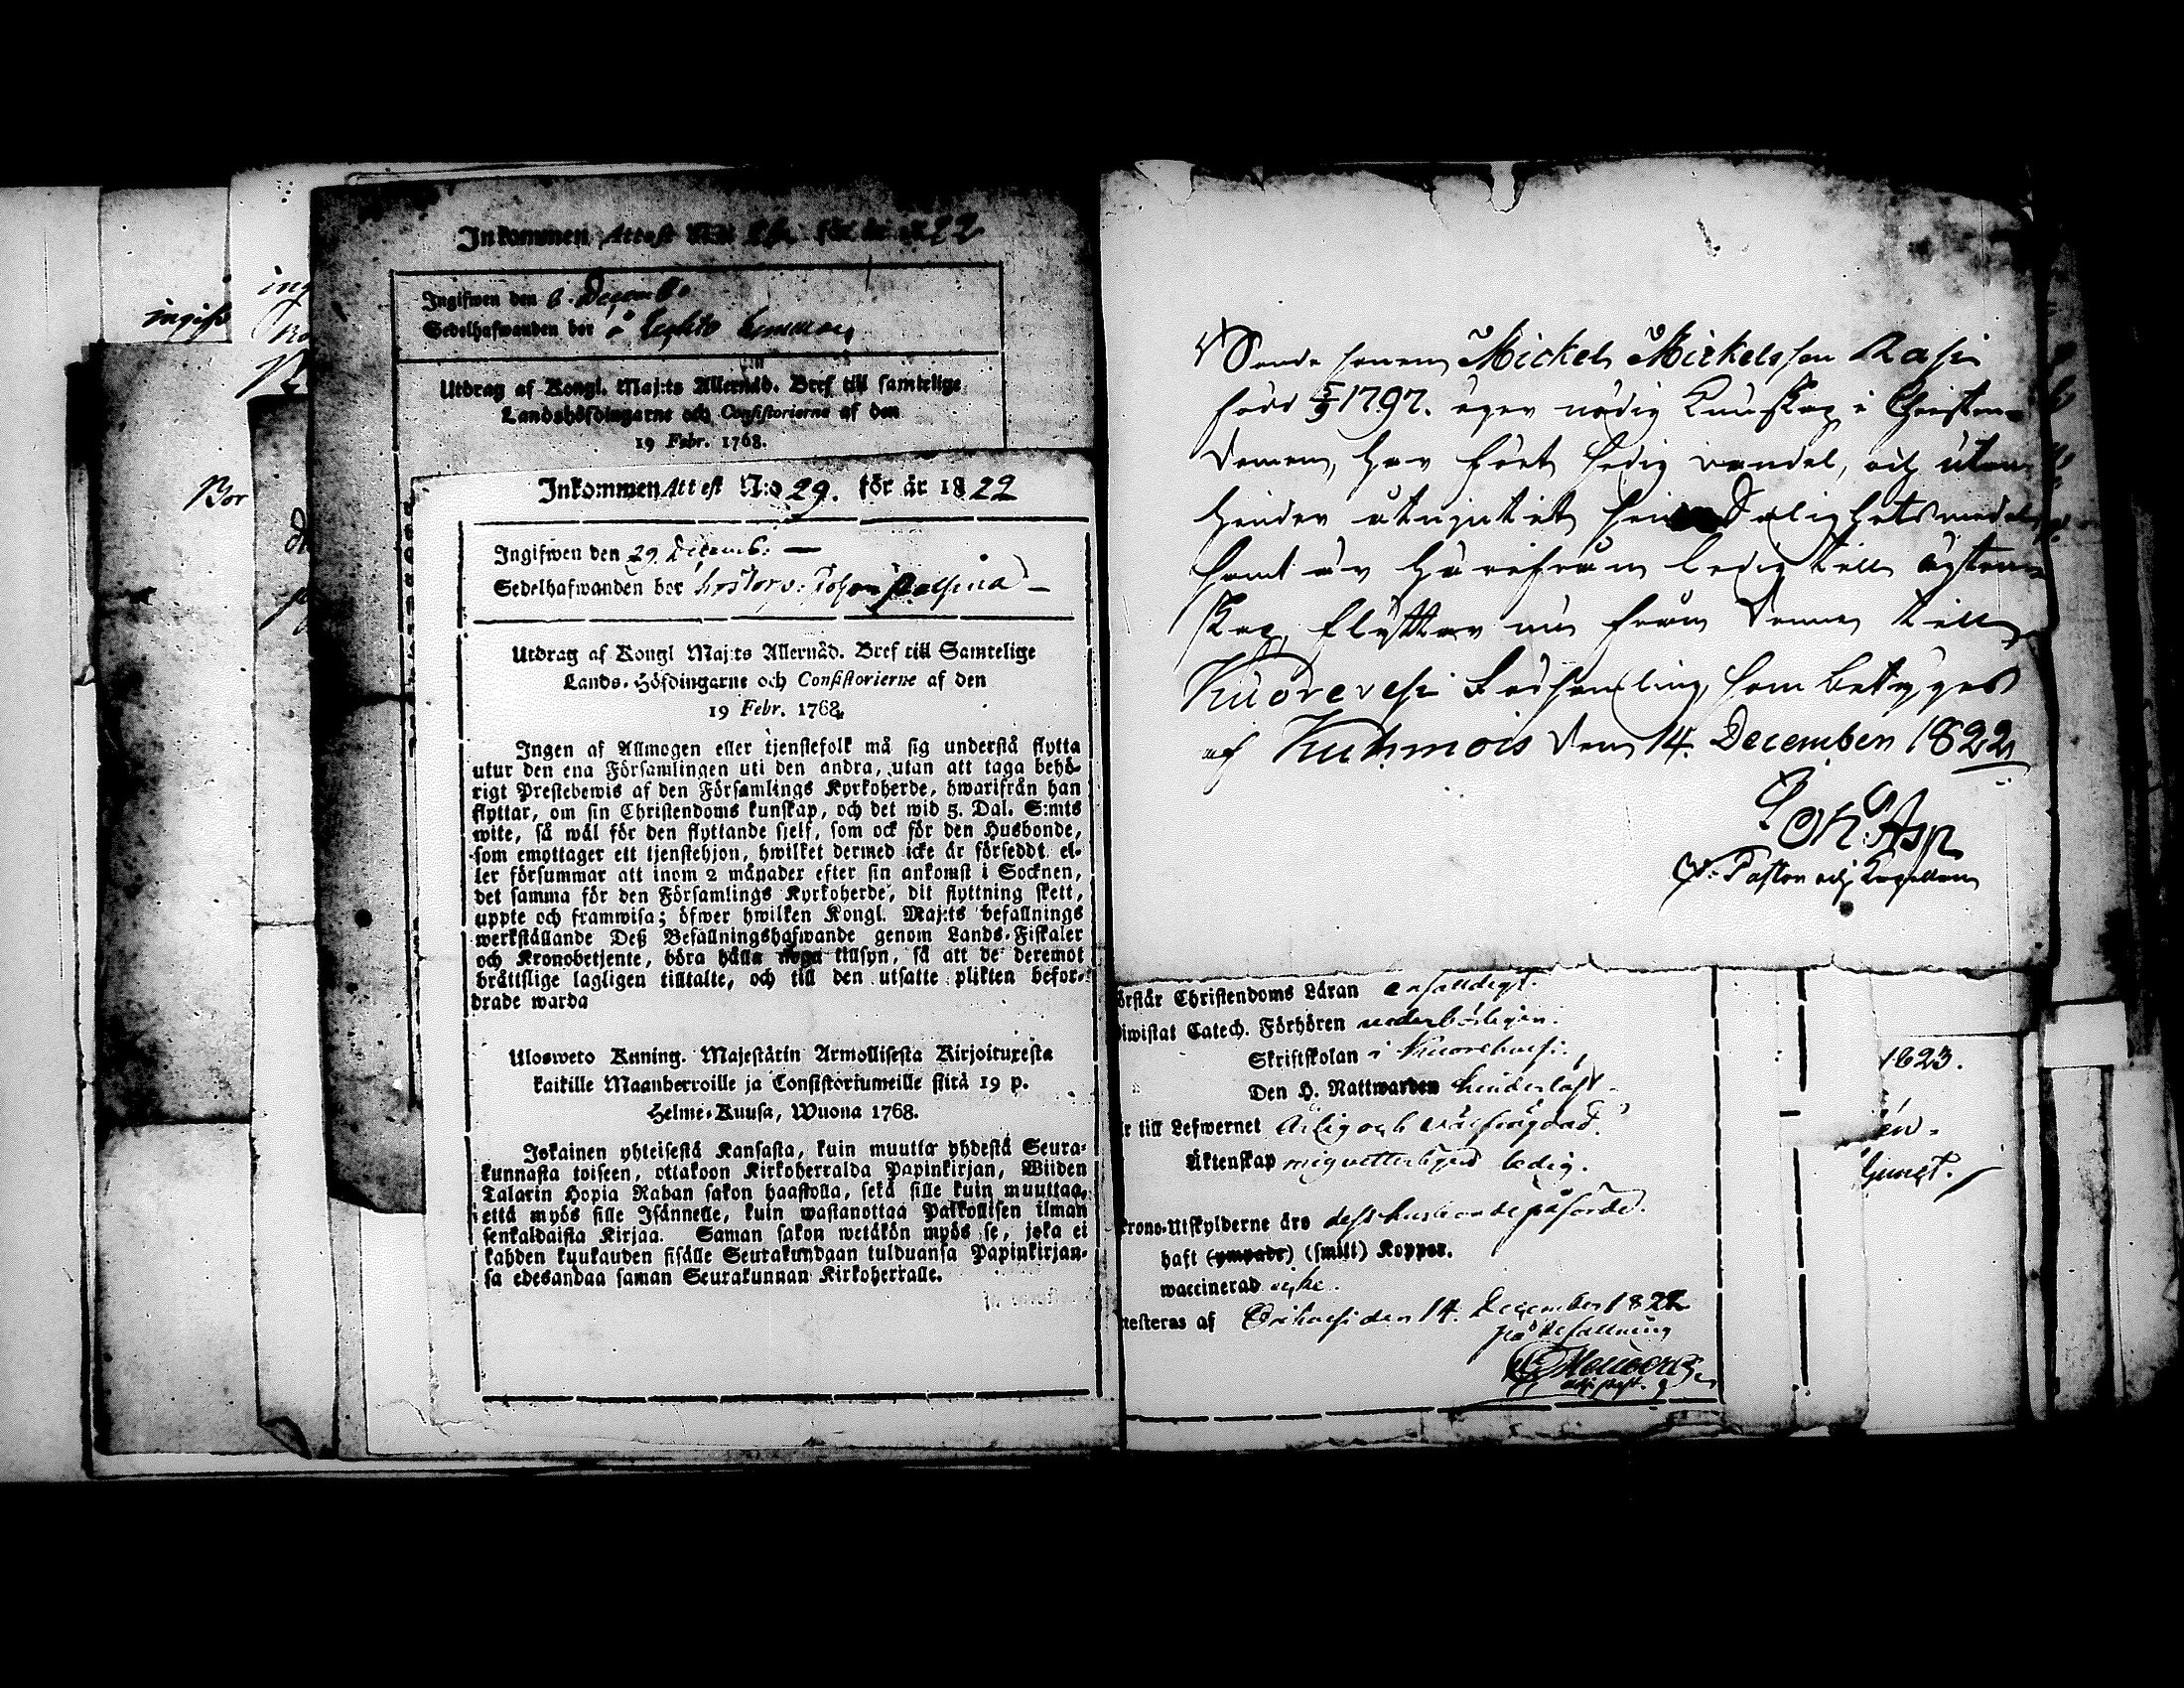 ingifs
Bor
Inkommen Attest
22
Ingifwen den 6. Decemb.
Sedelhafwanden bor å
Utdrag af Kongl. Maj:ts Allernåd. Bref till samtelige
Landshöfdingarne och Consistorierne af den
19 Febr. 1768.
Inkommen Attest N:o 29. för år 1822
Ingifwen den 29. Decemb: —
Sedelhafwanden bor
Utdrag af Kongl Maj:ts Allernåd. Bref till Samtelige
Lands-Höfdingarne och Consistorierne af den
19 Febr. 1768.
Ingen af Allmogen eller tjenstefolk må sig understå flytta
utur den ena Församlingen uti den andra, utan att taga behö-
rigt Prestebewis af den Församlings Kyrkoherde, hwarifrån han
flyttar, om sin Christendoms kunskap, och det wid 5. Dal. S:mts
wite, så wäl för den flyttande sjelf, som ock för den Husbonde,
som emottager ett tjenstehjon, hwilket dermed icke är förseddt el-
ler försummar att inom 2 månader efter sin ankomst i Socknen,
det samma för den Församlings Kyrkoherde, dit flyttning skett,
uppte och framwisa; öfwer hwilken Kongl. Maj:ts befallnings
werkställande Deß Befallningshafwande genom Lands-Fiskaler
och Kronobetjente, böra hålla noga tillsyn, så att de deremot
bråttslige lagligen tilltalte, och till den utsatte plikten befor-
drade warda
Ulosweto Kuning. Majestätin Armollisesta Kirjoituxesta
kaikille Maanherroille ja Consistoriumeille siitä 19 p.
Helme-Kuusa, Wuona 1768.
Jokainen yhteisestä Kansasta, kuin muutta yhdestä Seura-
kunnasta toiseen, ottakoon Kirkoherralda Papinkirjan, Wiiden
Talarin Hopia Rahan sakon haastolla, sekä sille kuin muuttaa,
että myös sille Isännelle, kuin wastanottaa Palkollisen ilman
senkaldaista Kirjaa. Saman sakon wetäkön myös se, joka ei
kahden kuukauden sisälle Seurakundaan tulduansa Papinkirjan-
sa edesandaa saman Seurakunnan Kirkoherralle.
Mickel Mickelsson Rasi
född 5/9 1797. eger nödig Kunskap i Christen-
domen, har fört sedig vandel, och utan
hinder utnjutit sina Salighetsmedel,
samt är härifrån ledig till ägten-
skap, flyttar nu från denna till
Kuorevesi Församling, som betygas
af Kuhmois den 14. December 1822
Joh: Asp
V. Pastor och Kapellan
örstår Christendoms Läran enfalldigt.
iwistat Catech. Förhören wederbörligen.
Skriftskolan i Kuorehwesi.
Den H. Nattwarden hinderlöst
r till Lefwernet ärlig och
Äktenskap mig wetterligen ledig.
krono-Utskylderne äro dess husbonde påförde.
haft (ympade) (smitt) Koppor.
waccinerad icke.
testeras af Orihwesi den 14. December 1822
på befallning
adj. past.
1823.